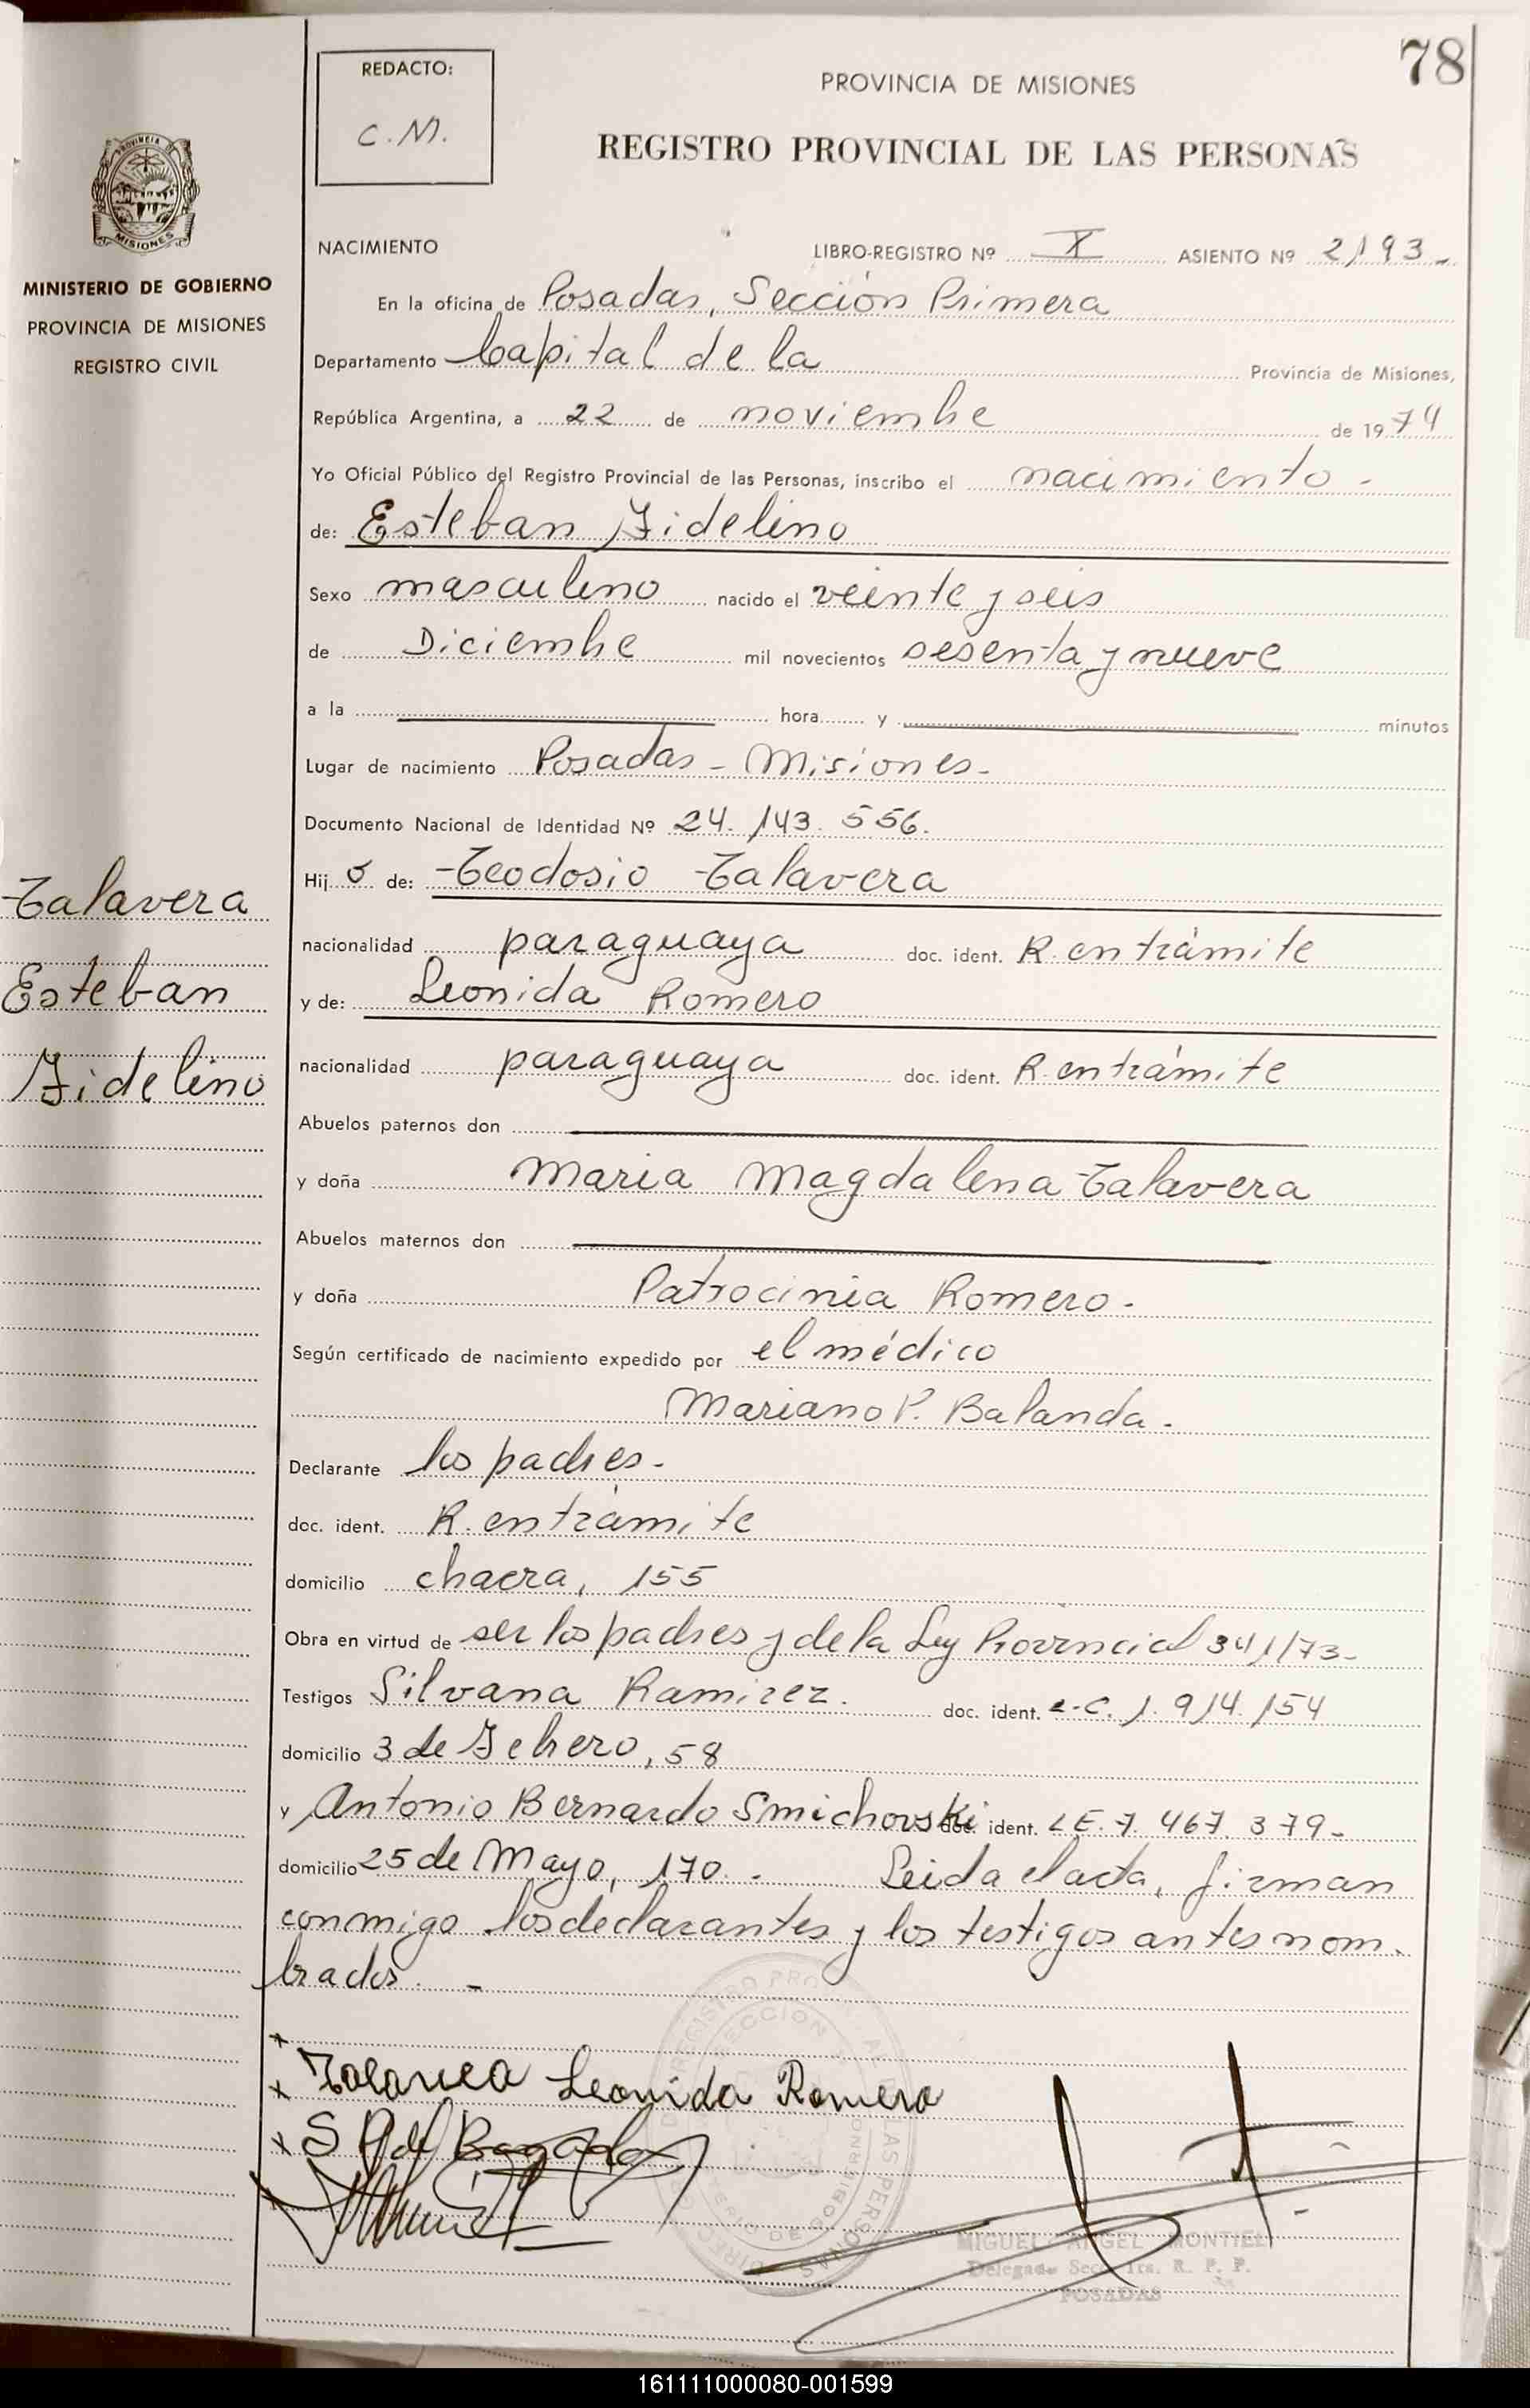 78
REDACTO:
C.M.
PROVINCIA DE MISIONES
REGISTRO PROVINCIAL DE LAS PERSONAS
MISIONES
MINISTERIO DE GOBIERNO
PROVINCIA DE MISIONES
REGISTRO CIVIL
NACIMIENTO LIBRO-REGISTRO Nº X ASIENTO Nº 2193-
En la oficina de Posadas, Sección Primera
Departamento Capital de la Provincia de Misiones,
República Argentina, a 22 de noviembre de 1974
Yo Oficial Público del Registro Provincial de las Personas, inscribo el nacimiento-
de: Esteban Fidelino
Sexo masculino nacido el veinte y seis
de Diciembre mil novecientos sesenta y nueve
a la hora y minutos
Lugar de nacimiento Posadas - Misiones-
Documento Nacional de Identidad Nº 24.143.556.
Hij o de: Teodosio Talavera
nacionalidad paraguaya doc. ident. R. en trámite
y de: Leonida Romero
nacionalidad paraguaya doc. ident. R. en trámite
Abuelos paternos don
y doña Maria Magdalena Talavera
Abuelos maternos don
y doña Patrocinia Romero-
Según certificado de nacimiento expedido por el médico
Mariano P. Balanda-
Declarante los padres-
doc. ident. R. en trámite
domicilio chacra, 155
Obra en virtud de ser los padres y de la Ley Provincial 341/73-
Testigos Silvana Ramirez. doc. ident. L.C. 1.914.154
domicilio 3 de Febrero, 58
y Antonio Bernardo Smichovski doc. ident. LE. 7.467.379-
domicilio 25 de Mayo, 170.- Leida el acta, firman
conmigo los declarantes y los testigos antes nom-
brados.-
Talavera
Esteban
Fidelino
Talavera Leonida Romero
MIGUEL ANGEL MONTIEL
Delegado Secc. 1ra. R. P. P.
POSADAS
161111000080-001599